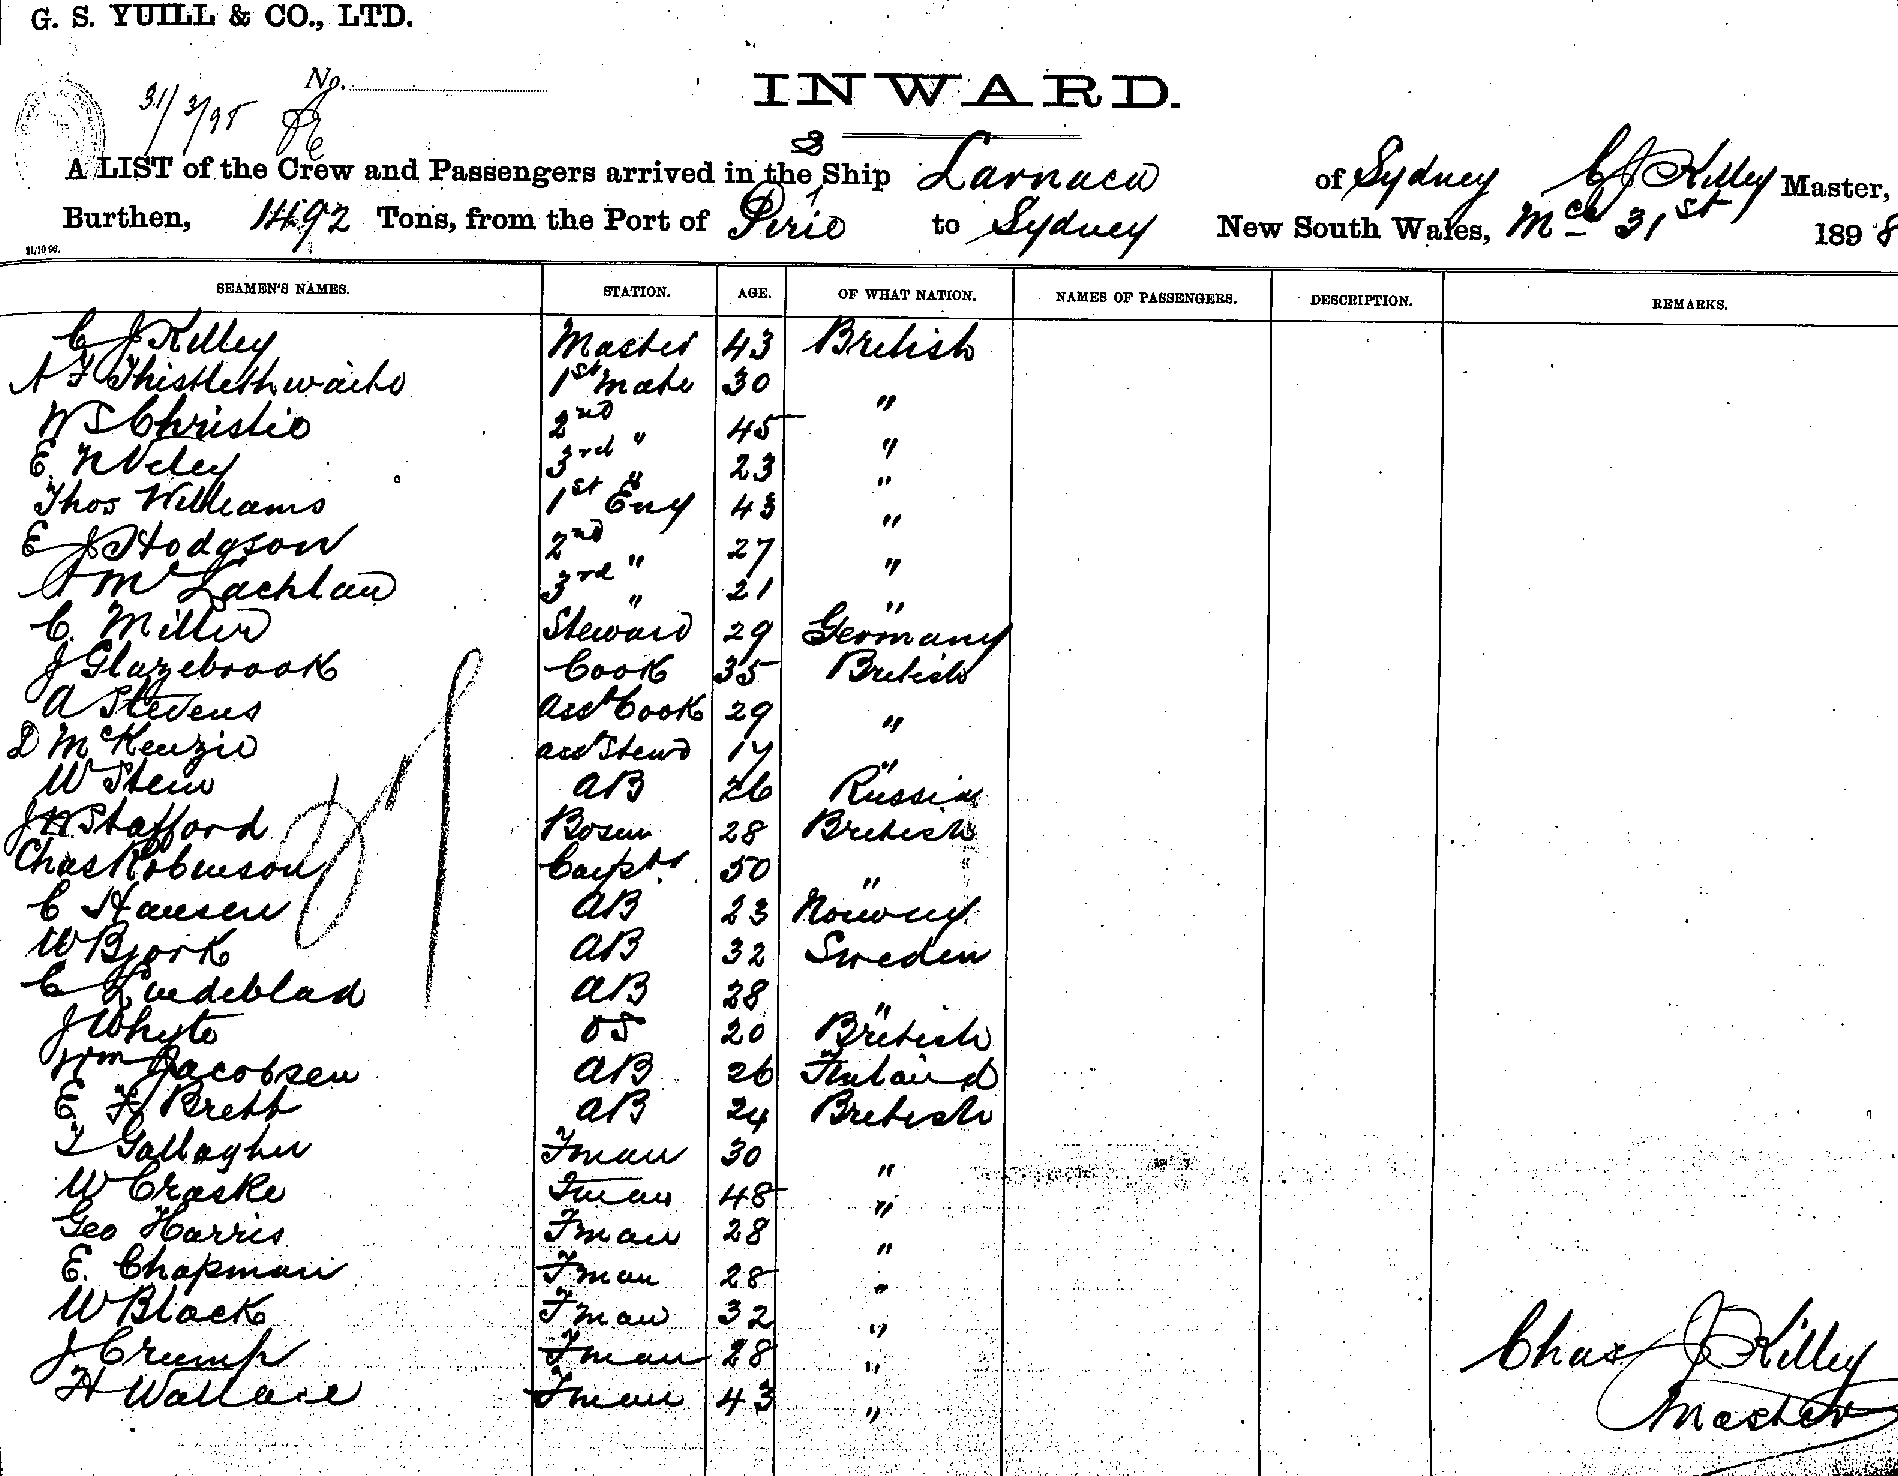 G. S. YUILL & CO., LTD.
No.
31/3/98
INWARD.
A LIST of the Crew and Passengers arrived in the Ship Larnaca of Sydney C J Killey Master,
Burthen, 1492 Tons, from the Port of Pirie to Sydney New South Wales, Mch 31st 1898
SEAMEN'S NAMES. STATION. AGE. OF WHAT NATION. NAMES OF PASSENGERS. DESCRIPTION. REMARKS.
C J Killey Master 43 British
A F Thistlethwaite 1st Mate 30 "
W S Christie 2nd " 45 "
E N Veley 3rd " 23 "
Thos Williams 1st Eng 43 "
E J Hodgson 2nd " 27 "
A McLachlan 3rd " 21 "
C. Miller Steward 29 Germany
J Glazebrook Cook 35 British
A Stevens asst Cook 29 "
D McKenzie asst Stewd 17 "
W Stein AB 26 Russia
J W Stafford Bosun 28 British
Chas Robinson Carptr 50 "
C Hansen AB 23 Norway
W Bjork AB 32 Sweden
C AB 28 "
J Whyte OS 20 British
Wm Jacobsen AB 26 Finland
E F Brett AB 24 British
T Gallagher Fman 30 "
W Craske Fman 48 "
Geo Harris Fman 28 "
E. Chapman Fman 28 "
W Black Fman 32 "
J Crump Fman 28 "
H Wallace Fman 43 "
Chas J Killey
Master